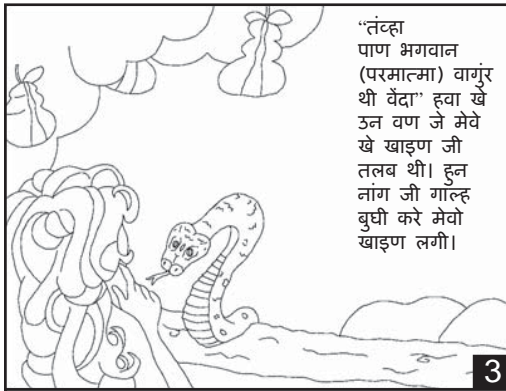 “तंव्हा
पाण भगवान
(परमात्मा) वागुंर
थी वेंदा” हवा खे
उन वण जे मेवे
खे खाइण जी
तलब थी। हुन
नांग जी गाल्ह
बुघी करे मेवो
खाइण लगी।
3